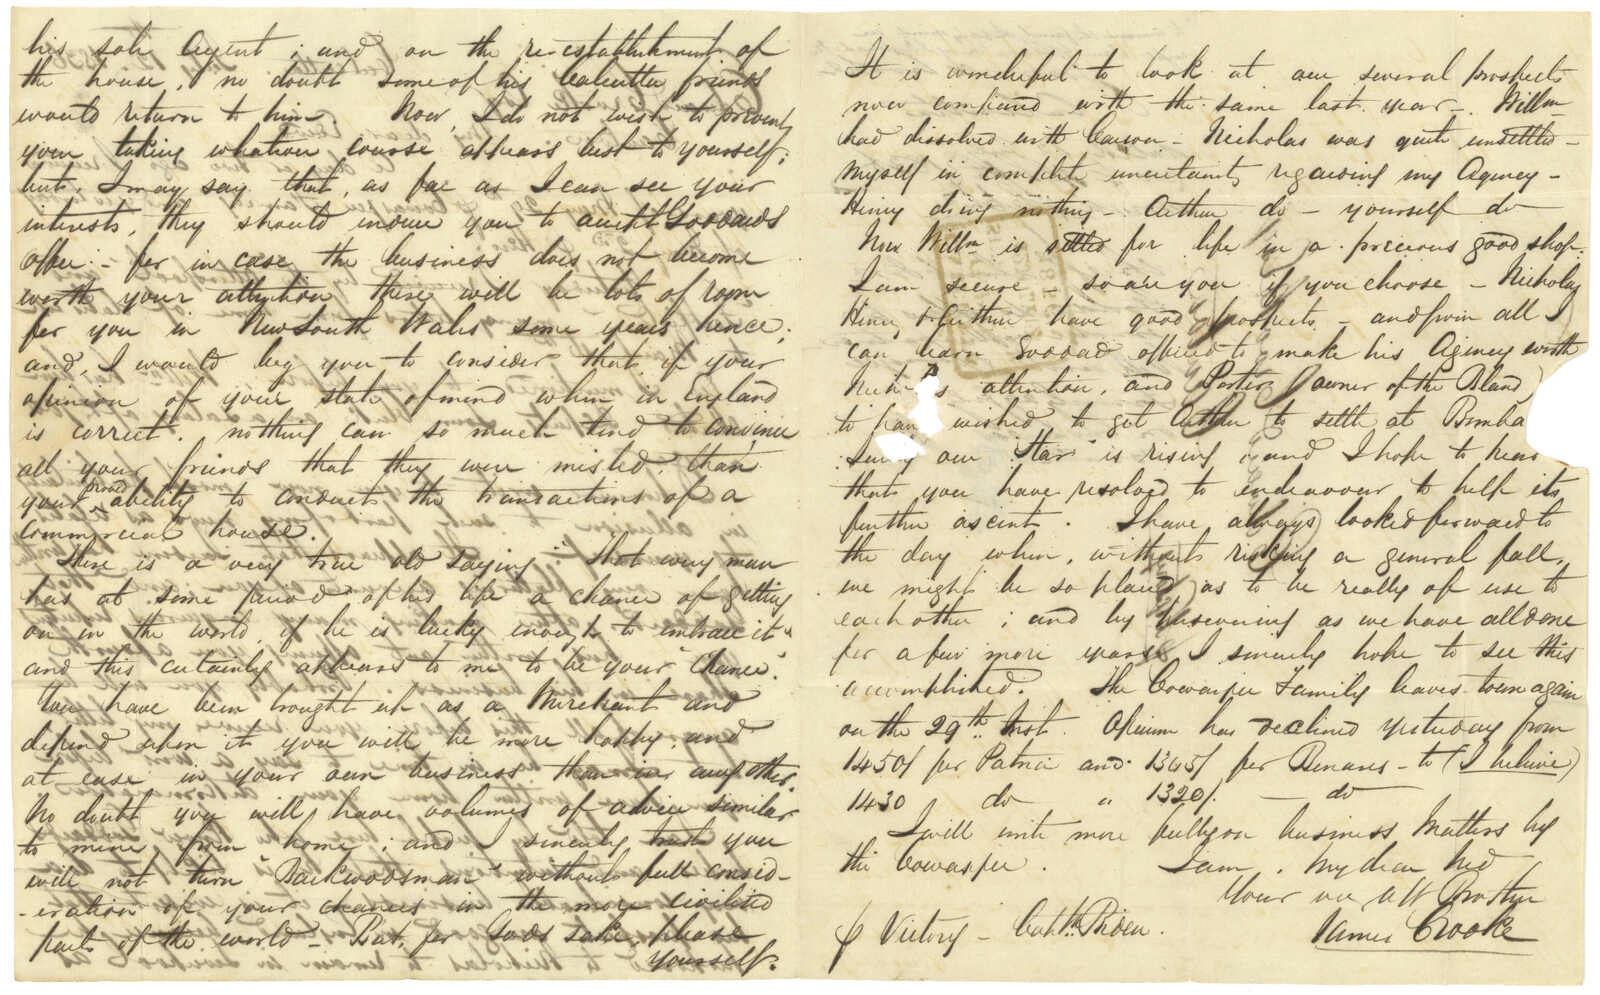 his sole Agent ; and on the re-establishment of
the house, no doubt some of his Calcutta friends
would return to him. Now, I do not wish to prevent
your taking whatever course appears best to yourself;
but, I may say that, as far as I can see your
interests, they should induce you to accept Goddards
offer – for in case the business does not become
worth your attention there will be lots of room
for you in New South Wales some years hence;
and, I would beg you to consider that, if your
opinion of your state of mind when in England
is correct, nothing can so much tend to convince
all your friends that they were misled, than
your proved ability to conduct the transactions of a
Commercial house.
There is a very true old saying "that every man
has at some period of his life a chance of getting
on in the world, if he is lucky enough to embrace it"
and this certainly appears to me to be your "chance".
You have been brought up as a Merchant and
depend upon it you will be more happy, and
at ease in your own business than in any other.
No doubt you will have volumes of advice similar
to mine from home ; and I sincerely trust you
will not turn "Backwoodsman" without full consid-
-eration of your chances in the more civilized
parts of the world – But, for Gods sake, please
yourself.
It is wonderful to look at our several prospects
now compared with the same last year – Willm
had dissolved with – Nicholas was quite unsettled –
myself in complete uncertainty regarding my Agency –
Henry doing nothing – Arthur do – yourself do
Now Willm is settled for life in a precious good shop.
I am secure – so are you if you choose – Nicholas
Henry & Arthur have good prospects – and from all I
can learn Goddard offered to make his Agency worth
attention, and Porter (owner of the Bland)
to wished to get Arthur to settle at Bomba
Surely our "Star" is rising ; and I hope to hear
that you have resolved to endeavour to help its
further ascent. I have always looked forward to
the day when, without risking a general fall,
we might be so placed as to be really of use to
each other ; and by persevering as we have all done
for a few more years I sincerely hope to see this
accomplished. The Cowasjee Family leaves town again
on the 29th Inst. Opium has declined yesterday from
1450/ per Patna and 1345/ per Benares – to (I believe)
1430 do " 1320/. – do –
I will write more fully on business matters by
the Cowasjee. I am, My dear Ned
Your Brother
James Crooke
Victory – Captn Biden.